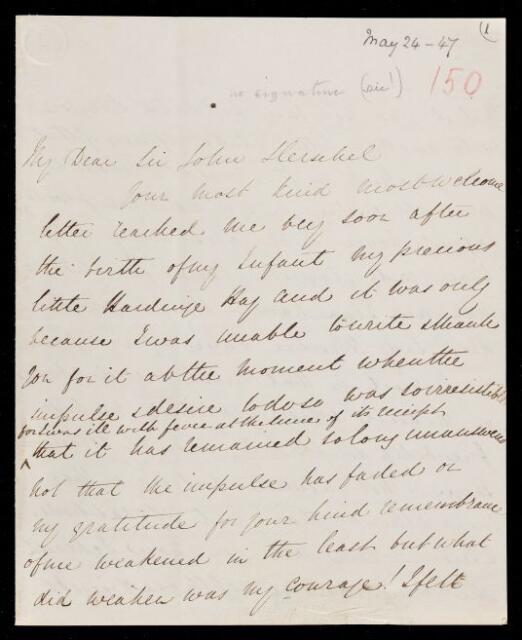 May 24-47
1
no signature (sic!)
150
My Dear Sir John Herschel
Your most kind most welcome
letter reached me very soon after
the birth of my Infant my precious
little Hardinge Hay and it was only
because I was unable to write & thank
you for it at the moment when the
impulse & desire to do so was so irresistible
for I was ill with fever at the time of its receipt
that it has remained so long unanswered
not that the impulse has faded or
my gratitude for your kind remembrance
of me weakened in the least but what
did weaken was my courage! I felt